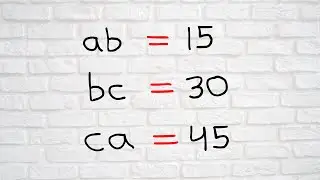 ab = 15
bc = 30
ca = 45